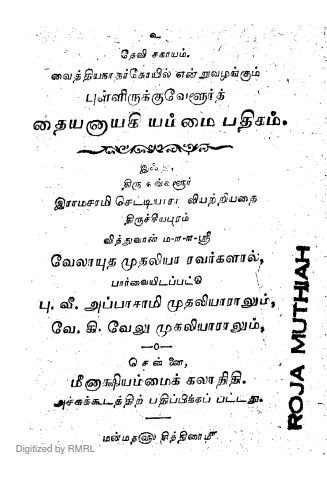 உ
தேவி சகாயம்.
வைத்தியநாதர்கோயில் என்றுவழங்கும்
புள்ளிருக்குவேளூர்த்
தையனாயகி யம்மை பதிகம்.
இஃது,
திரு
இராமசாமி செட்டியாரா லியற்றியதை
திருச்சியபுரம்
வித்துவான் ம-ள-ள-ஸ்ரீ
வேலாயுத முதலியா ரவர்களால்,
பார்வையிடப்பட்டு
பு. வீ. அப்பாசாமி முதலியாராலும்,
வே. கி. வேலு முதலியாராலும்,
சென்னை,
மீனாக்ஷியம்மைக் கலாநிதி.
அச்சுக்கூடத்திற் பதிப்பிக்கப் பட்டது.
மன்மதளு சித்திரைமீ
ROJA MUTHIAH
Digitized by RMRL